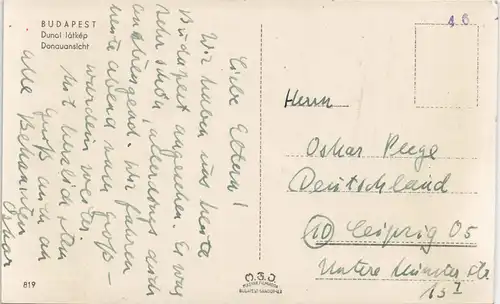 BUDAPEST
Dunai látkép
Donauansicht
4 6
Liebe Eltern!
Wir haben uns heute
Budapest angesehen. Es war
sehr schön, allerdings auch
anstrengend. Wir fahren
heute abend zum Groß-
wardein weiter.
Mit herzlichsten
Gruß auch an
alle Bekannten
Oskar
Herrn
Oskar
Deutschland
(10) Leipzig O5
Untere Münster Str
15 I
819